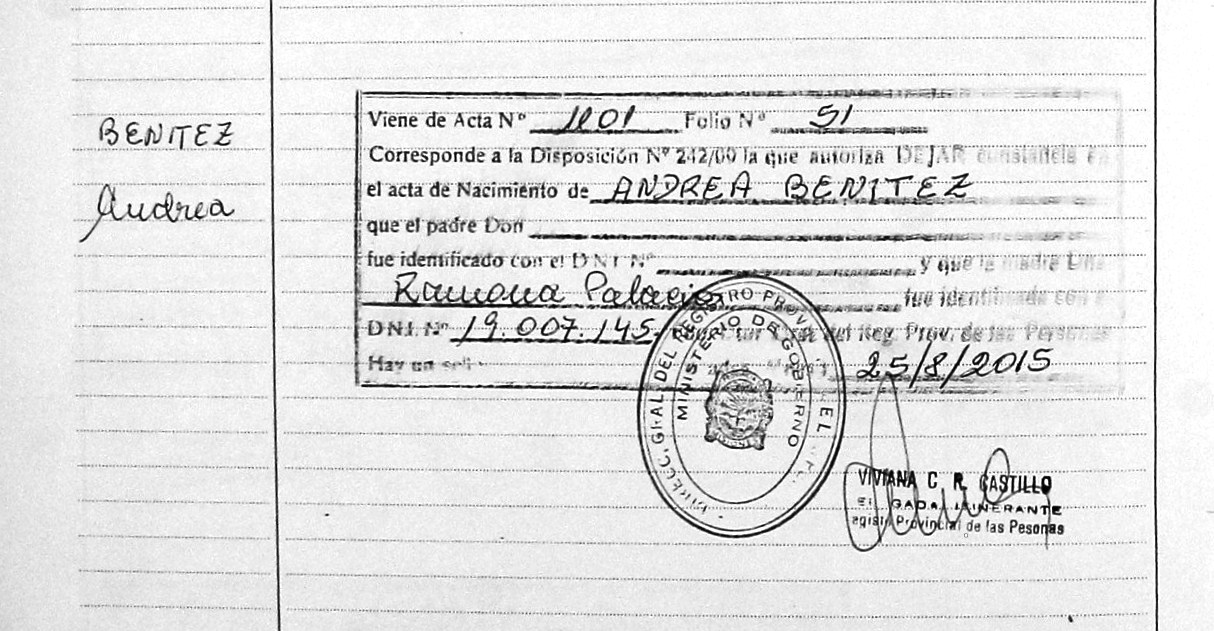 BENITEZ
Andrea
Viene de Acta Nº 1101 Folio Nº 51
Corresponde a la Disposición Nº 242/00 la que autoriza DEJAR constancia en
el acta de Nacimiento de ANDREA BENITEZ
que el padre Don
fue identificado con el DNI Nº y que la madre Dña
Ramona Palacio fue identificada con e
DNI. Nº 19.007.145 del Reg. Prov. de las Personas
Hay un sell 25/8/2015
DIRECC. GRAL. DEL REGISTRO PROV
MINISTERIO DE GOBIERNO
VIVIANA C. R. CASTILLO
GADA ITINERANTE
Provincial de las Pesonas